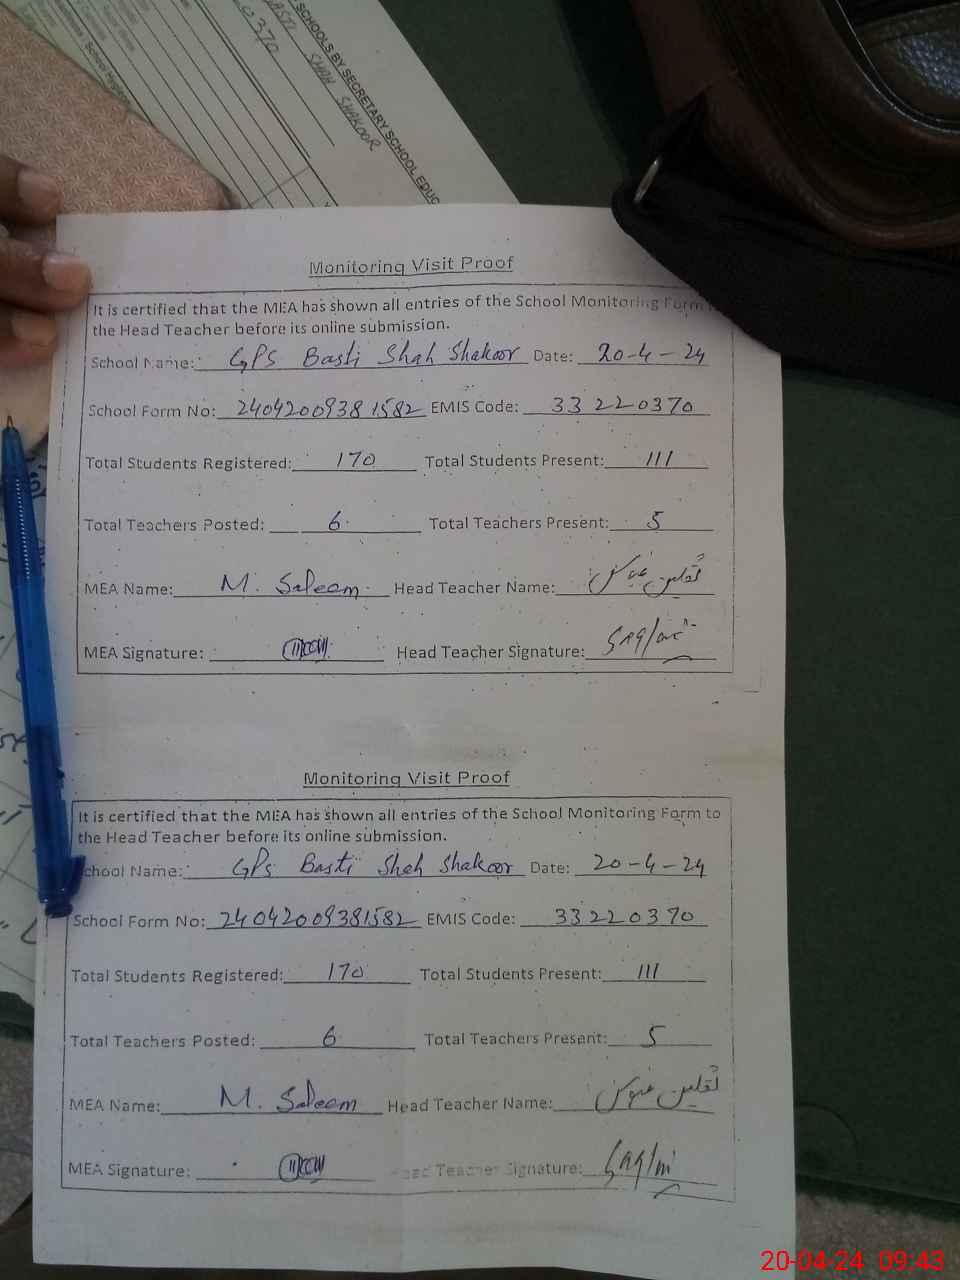 SCHOOLS BY SECRETARY SCHOOL EDUC
SHAH SHAKOOR
0370
Monitoring Visit Proof
It is certified that the MEA has shown all entries of the School Monitoring Form to
the Head Teacher before its online submission.
School Name: GPS Basti Shah Shakoor Date: 20-4-24
School Form No: 24042009381582 EMIS Code: 33220370
Total Students Registered: 170 Total Students Present: 111
Total Teachers Posted: 6 Total Teachers Present: 5
MEA Name: M. Saleem Head Teacher Name:
MEA Signature: Head Teacher Signature:
Monitoring Visit Proof
It is certified that the MEA has shown all entries of the School Monitoring Form to
the Head Teacher before its online submission.
School Name: GPS Basti Shah Shakoor Date: 20-4-24
School Form No: 24042009381582 EMIS Code: 33220370
Total Students Registered: 170 Total Students Present: 111
Total Teachers Posted: 6 Total Teachers Present: 5
MEA Name: M. Saleem Head Teacher Name:
MEA Signature: Head Teacher Signature:
20-04-24 09:43